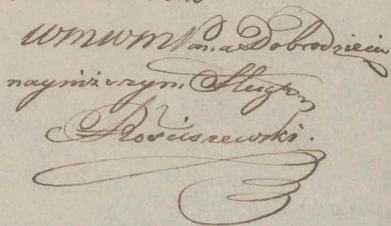 WMWM Pana Dobrodzieia
nayniższym Sługą
Rościszewski.